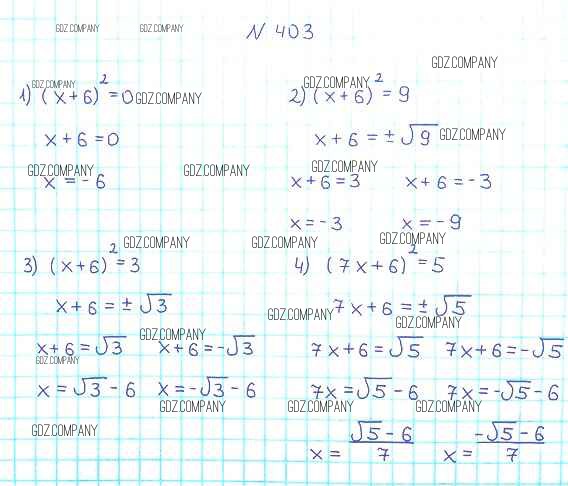 GDZ.COMPANY GDZ.COMPANY N 403
GDZ.COMPANY
GDZ.COMPANY GDZ.COMPANY
1) (x+6)² = 0 GDZ.COMPANY 2) (x+6)² = 9
x+6=0 x+6 = ± √9 GDZ.COMPANY
GDZ.COMPANY GDZ.COMPANY GDZ.COMPANY
x = - 6 x+6=3 x+6=-3
x=-3 x=-9
GDZ.COMPANY GDZ.COMPANY GDZ.COMPANY
3) (x+6)² = 3 4) (7x+6)² = 5
x+6 = ± √3 GDZ.COMPANY 7x+6 = ± √5
GDZ.COMPANY GDZ.COMPANY
x+6=√3 x+6=-√3 7x+6=√5 7x+6=-√5
GDZ.COMPANY
x=√3-6 x=-√3-6 7x=√5-6 7x=-√5-6
GDZ.COMPANY GDZ.COMPANY GDZ.COMPANY
GDZ.COMPANY x = (√5-6)/7 x = (-√5-6)/7